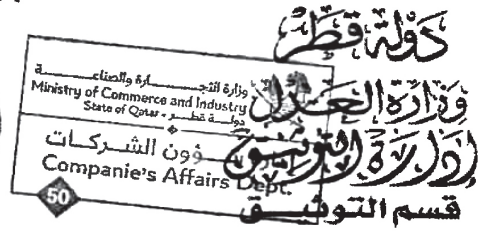 دولة قطر
وزارة العدل
إدارة التوثيق
قسم التوثيق
وزارة التجـــارة والصناعـــة
Ministry of Commerce and Industry
State of Qatar - دولـة قطـر
ؤون الشركات
Companie's Affairs Dept.
50